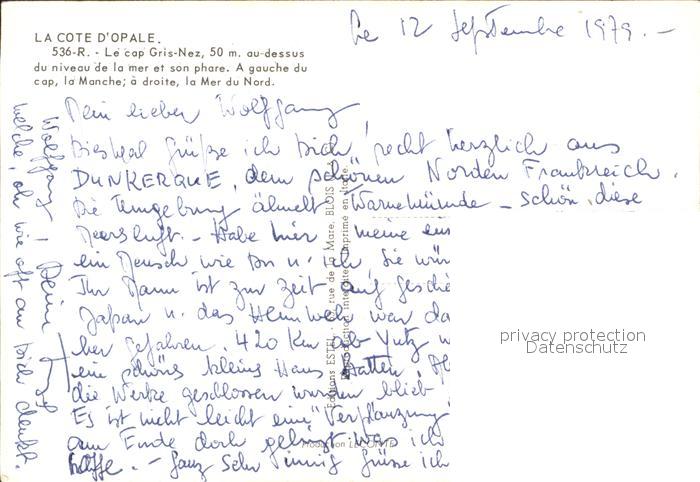 LA COTE D'OPALE.
536-R. - Le cap Gris-Nez, 50 m. au-dessus
du niveau de la mer et son phare. A gauche du
cap, la Manche; à droite, la Mer du Nord.
Le 12 Septembre 1979. -
Mein lieber Wolfgang,
Diesmal grüße ich Dich recht herzlich aus
DUNKERQUE, dem schönen Norden Frankreich.
Die Umgebung ähnelt Warnemünde - schön, diese
Meersluft. - Habe hier meine ein
ein Mensch wie Du u. ich, Sie wür
Ihr Mann ist zur Zeit auf geschä
Japan u. das Heimweh war da
her gefahren. 420 Km ab Yutz w
ein schönes kleines Haus hatten.
die Werke geschlossen wurden blieb
Es ist nicht leicht eine "Verpflanzung"
am Ende doch gelingt was ich
hoffe. - Ganz sehr innig grüsse ich
Wolfgang! Deine
welche, oh wie oft an Dich denkt.
Editions ESTEL - rue de la Mare, BLOIS
Reproduction interdite Imprimé en
privacy protection
Datenschutz